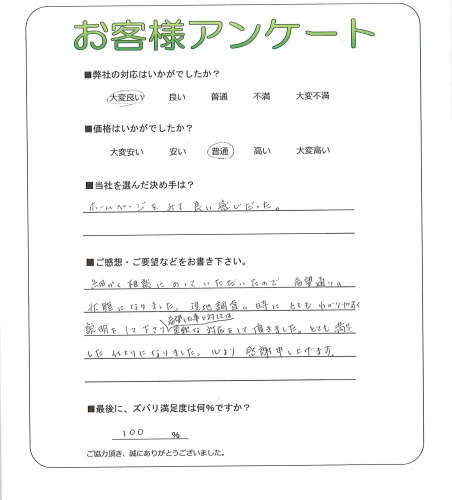 お客様アンケート
■弊社の対応はいかがでしたか？
大変良い 良い 普通 不満 大変不満
■価格はいかがでしたか？
大変安い 安い 普通 高い 大変高い
■当社を選んだ決め手は？
ホームページをみて良い感じだった。
■ご感想・ご要望などをお書き下さい。
細かく相談にのっていただいたので希望通りの
状態になりました。現地調査の時にとてもわかりやすく
希望仕事に対しては
説明をして下さり柔軟な対応をして頂きました。とても満足
した仕上りになりました。心より感謝申し上げます。
■最後に、ズバリ満足度は何%ですか？
100 %
ご協力頂き、誠にありがとうございました。